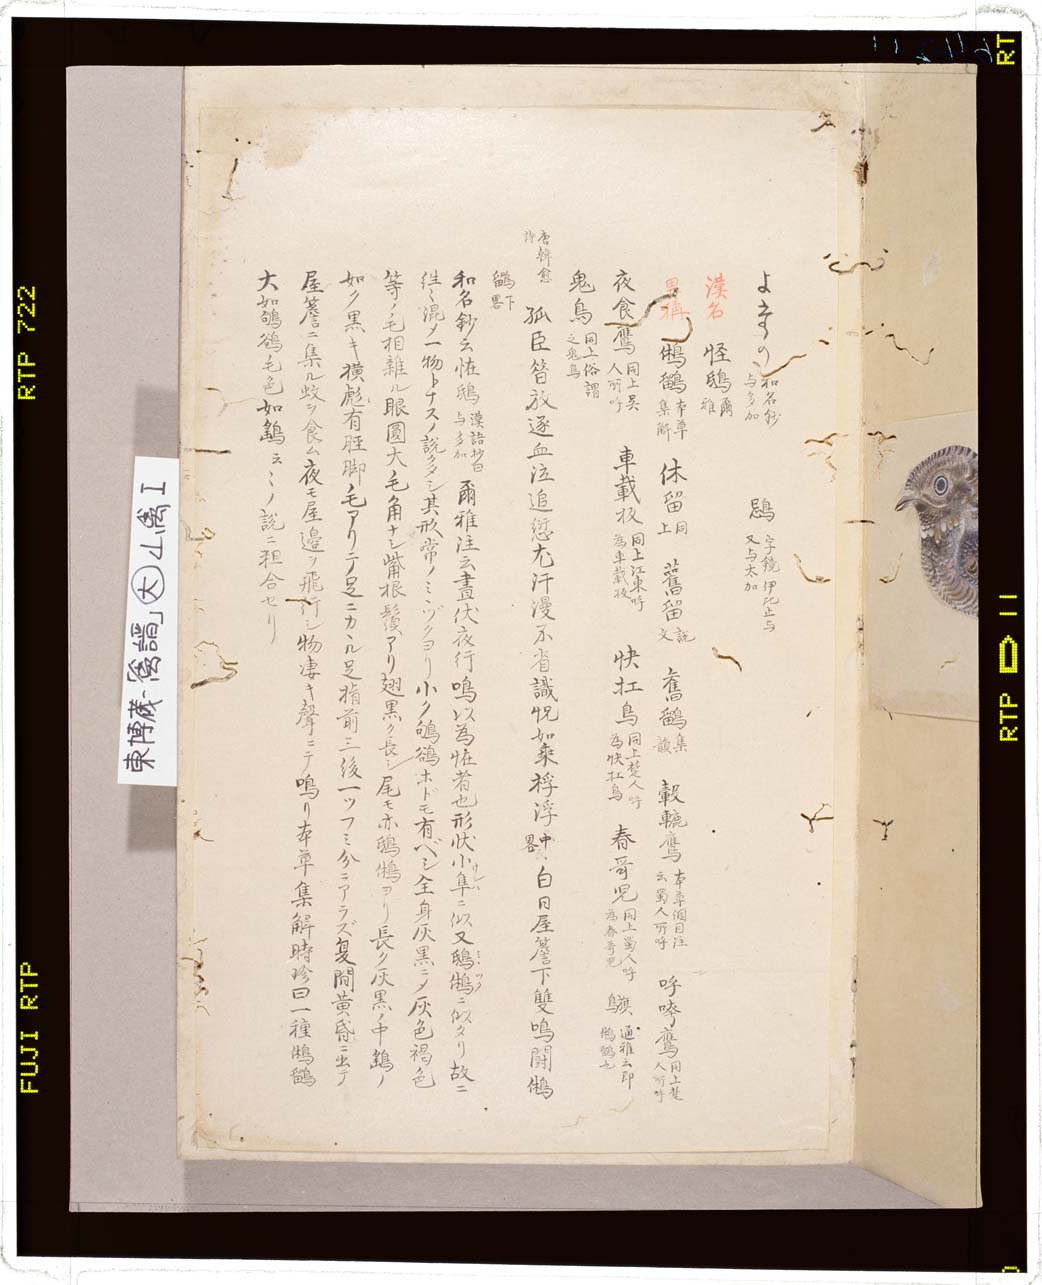 よたか 和名鈔 与多加 鴟 字鏡 伊比止与 又与太加
漢名 怪鴟 爾雅
異稱 鵂鶹 本草集解 休留 同上 鶹留 説文 舊鶹 集韻 轂轆鷹 本草綱目注云蜀人所呼 呼咵鷹 同上楚人所呼
夜食鷹 同上吴人所呼 車載板 同上江東呼為車載板 快扛鳥 同上楚人呼為快扛鳥 春哥児 同上蜀人呼為春哥児 鵋鳥 通雅云即鵂鶹也
鬼鳥 同上俗謂之鬼鳥
唐韓愈詩 孤臣昔放逐血泣追愆尤汗漫不省識怳如乗桴浮 中畧 白日屋簷下雙鳴鬪鵂
鶹 下畧
和名鈔云恠鴟 漢語抄曰与多加 爾雅注云晝伏夜行鳴以為恠者也形状小隼ニ似又鴟鵂ミミツクニ似タリ故ニ
徃々混メ一物トナスノ説多シ其形常ノミヽヅクヨリ小ク鴝鵒ホドモ有ベシ全身灰黒ニメ灰色褐色
等ノ毛相雜ル眼圓大毛角ナシ觜根鬚アリ翅黒ク長シ尾モ亦鴟鵂ヨリ長ク灰黒ノ中鷄ノ
如ク黒キ横彪有脛脚ノ毛アリテ足ニカヽル足指前三後一ツフミ分ニアラズ夏間黄昏ニ出テ
屋簷ニ集ル蚊ヲ食ム夜モ屋邉ヲ飛行シ物凄キ聲ニテ鳴リ本草集解時珍曰一種鵂鶹
大如鴝鵒毛色如鷂云々ノ説ニ粗合セリ
東博蔵「禽譜」大 山禽 I
RTP 722
FUJI RTP
RT
RTP D 11